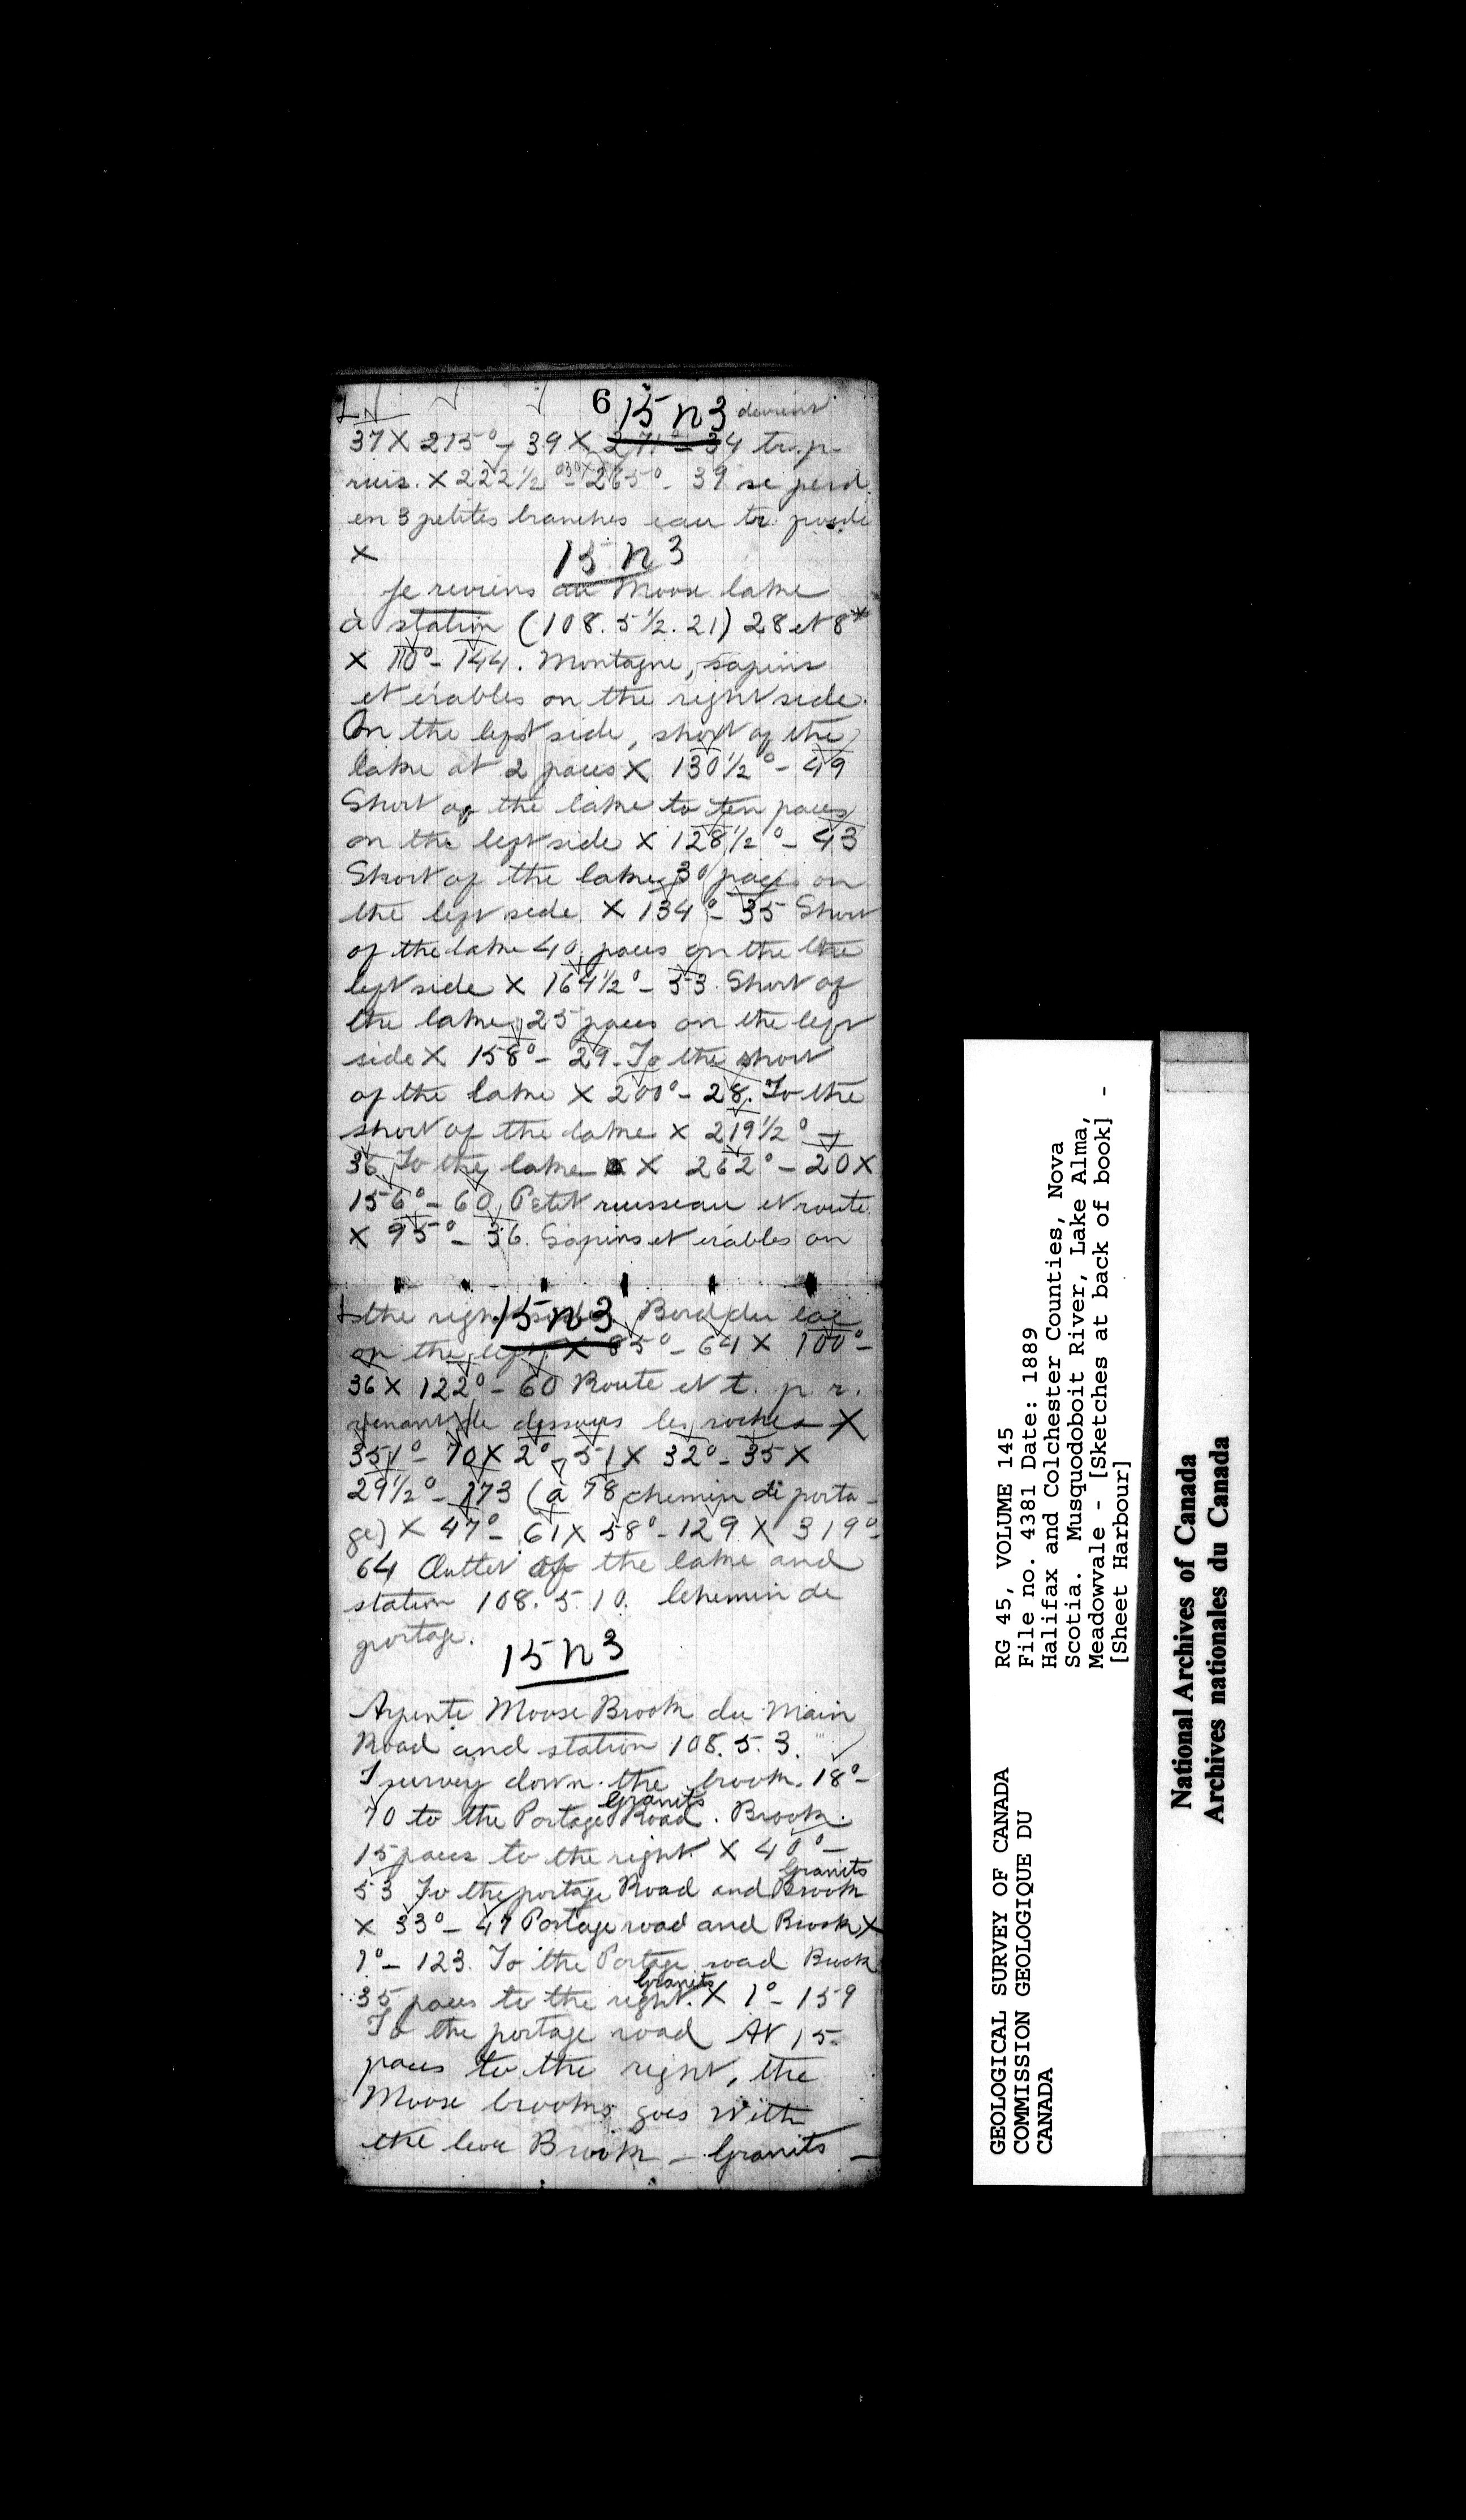 6
15 n3
37 X 215° - 39 X 271° - 34 tr. p.
ruis. X 222 1/2° - 265° - 39 se perd
en 3 petites branches eau tr.
X
15 n3
Je reviens au Moose lake
à station (108. 5 1/2. 21) 28 et 8*
X 110° - 144. Montagne, sapins
et érables on the right side.
On the left side, short of the
lake at 2 paces X 130 1/2° - 49
Short of the lake to ten paces
on the left side X 128 1/2° - 43
Short of the lake 30 paces on
the left side X 134° - 35 Short
of the lake 40 paces on the the
left side X 164 1/2° - 33. Short of
the lake 25 paces on the left
side X 158° - 29. To the short
of the lake X 200° - 28. To the
short of the lake X 219 1/2° -
36 To the lake X 262° - 20 X
156° - 60 Petit ruisseau et route
X 95° - 36. Sapins et érables on
15 n3
the right side Bord du lac
on the left X 85° - 64 X 100° -
36 X 122° - 60 Route et t. p. r.
venant de dessous les roches X
351° - 70 X 2° - 51 X 32° - 35 X
29 1/2° - 173 (à 78 chemin de porta-
ge) X 47° - 61 X 58° - 129 X 319° -
64 Outlet of the lake and
station 108. 5. 10. Chemin de
portage.
15 n3
Arpente Moose Brook du Main
Road and station 108. 5. 3.
I survey down the brook. 18° -
Granits
70 to the Portage Road. Brook.
15 paces to the right X 40° -
Granits
53 To the portage Road and Brook
X 33° - 47 Portage road and Brook X
1° - 123. To the Portage road Brook
Granits
35 paces to the right. X 1° - 159
To the portage road At 15
paces to the right, the
Moose brooks goes with
the Brook - Granits -
GEOLOGICAL SURVEY OF CANADA
COMMISSION GEOLOGIQUE DU
CANADA
RG 45, VOLUME 145
File no. 4381 Date: 1889
Halifax and Colchester Counties, Nova
Scotia. Musquodoboit River, Lake Alma,
Meadowvale - [Sketches at back of book] -
[Sheet Harbour]
National Archives of Canada
Archives nationales du Canada